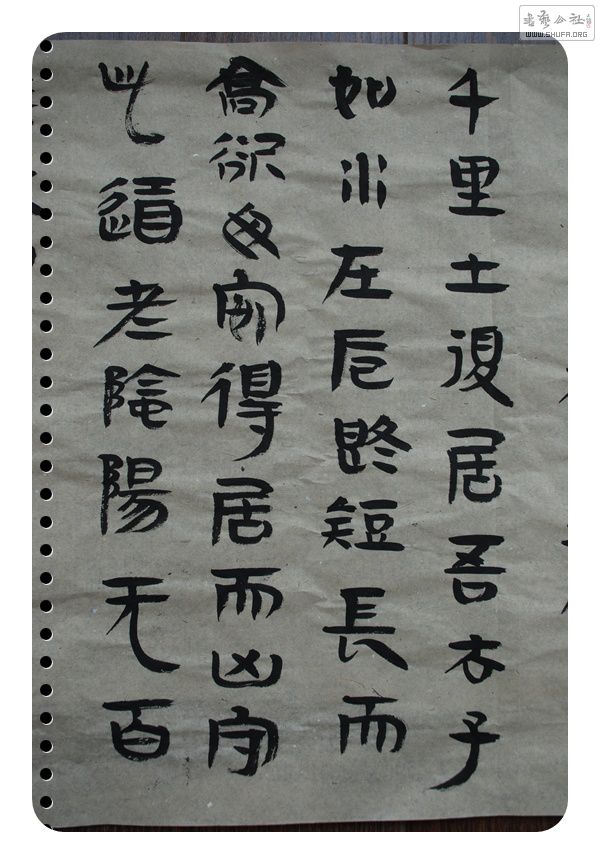 书艺公社
WWW.SHUFA.ORG
千里土復居吾子
如水左路短長而
高欲毋得居而凶守
此道老陰陽无百